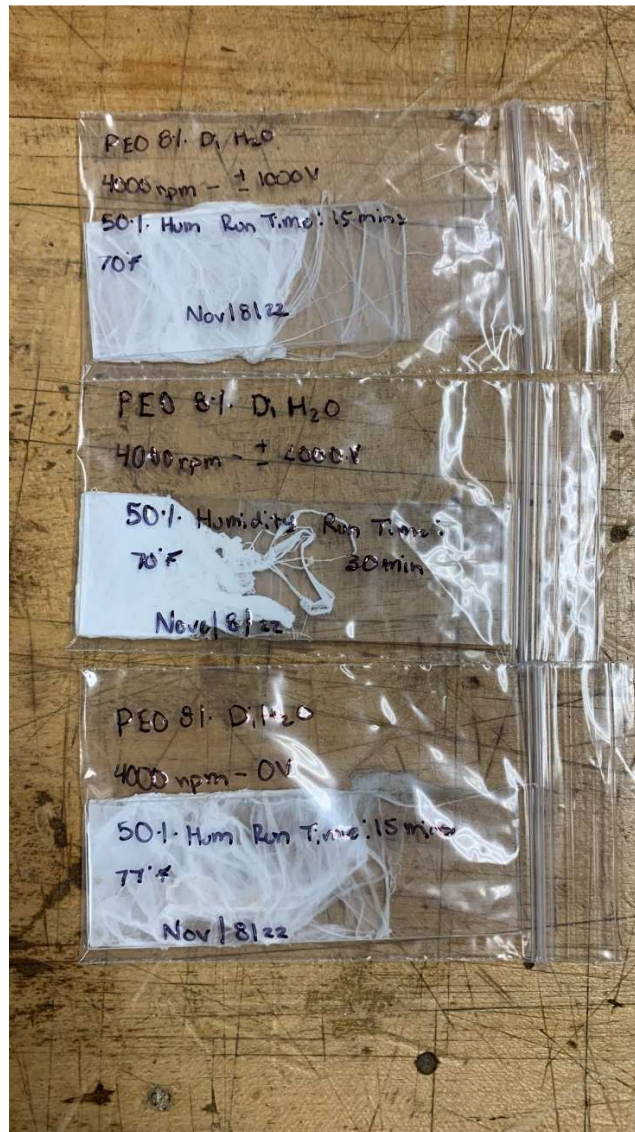 PEO 8% Di H₂O
4000 rpm - ± 1000V
50% Hum Run Time: 15 mins
70°F
Nov/8/22
PEO 8% Di H₂O
4000 rpm - ±
50% Humidity Run Time:
70°F 30min
Nov/8/22
PEO 8% Di H₂O
4000 rpm - 0V
50% Hum Run Time: 15 mins
77°F
Nov/8/22